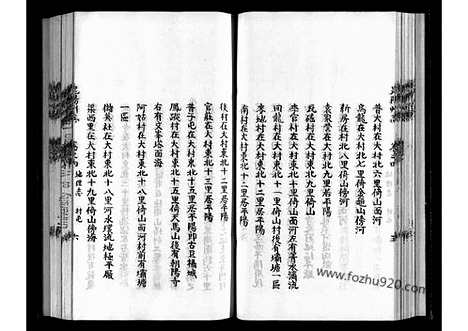 曹大村在大村北六里倚山面河
烏龍在大村北七里倚金廻山傍河
新房在村北八里倚山傍河
袁家營在大村北九里居平陽
瓦碴村在大村北十里居平陽
李官村在大村北十一里倚山面河左右有菁水溝流
司龍村在大村北十一里倚山村後有壩塘一區
李地村在大村北十二里居平陽
南村在大村北十二里居平陽
後村在大村東北十二里居平陽
官莊在大村東北十二里居平陽
普子在大村東北十五里居平陽即古苴橘城
鳳踪村在大村東北十五里倚天馬山後有朝陽寺
右有文峯塔面海
阿姑村在大村東北十八里倚山面河村前有壩塘
一區
備英社在大村東北十八里河水環流地極平厰
梁西里在大村東北十九里倚山傍海
地理志
村屯
六
www.fozhu920.com